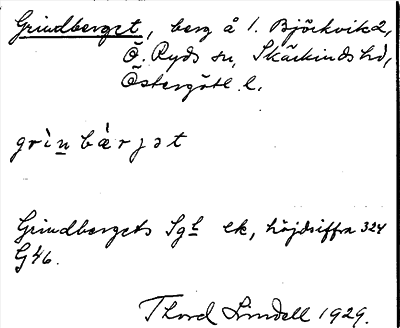 Grindberget, berg å 1. Björkvik 2,
Ö. Ryds sn, Skärkinds hd,
Östergötl. l.
grìnbæ̀rjət
Grindbergets Sgt ek, höjdsiffra 324
G46.
Thord Lindell 1929.